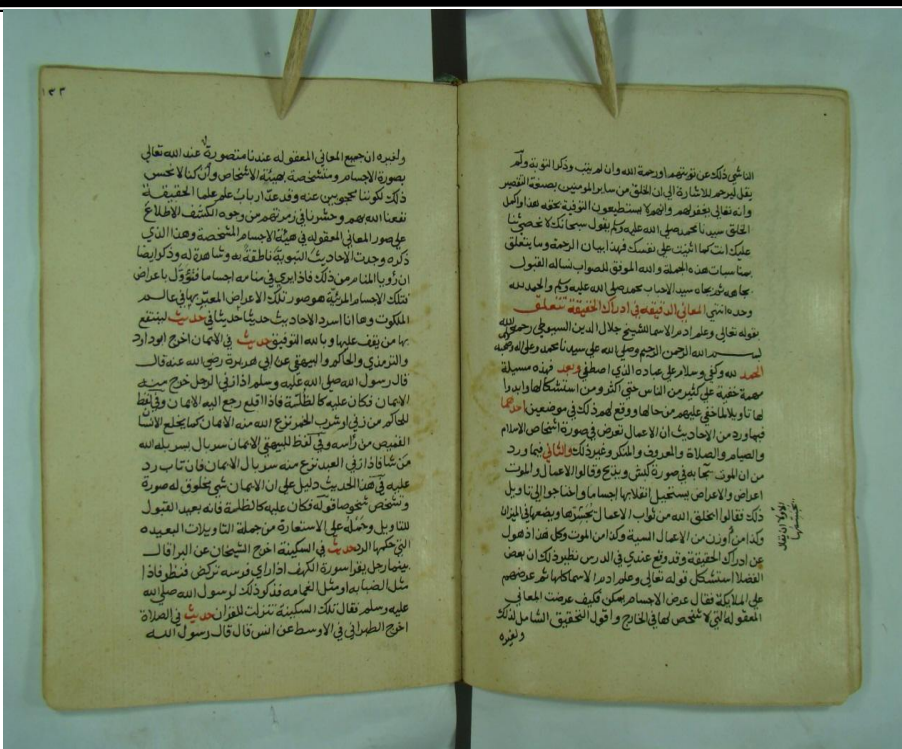 الناشي ذلك عن توبتهم او رحمة الله وان لم يتب وذكرا التوبة ولم
يقل ليرحم للاشارة الى ان الخلق من ساير المومنين بصفة التقصير
وانه تعالى يغفر لهم وانهم لا يستطيعون التوفية بحقه هذا واكمل
الخلق سيدنا محمد صلى الله عليه وسلم يقول سبحانك لا نحصي ثنا
عليك انت كما اثنيت على نفسك فهذا بيان الرحمة وما يتعلق
بمناسبات هذه الجملة والله الموفق للصواب نساله القبول
بجاهه سيد الاحباب محمد صلى الله عليه وسلم والحمد لله
وحده انتهى المعاني الدقيقه في ادراك الحقيقة تتعلق
بقوله تعالى وعلم ادم الاسما للشيخ جلال الدين السيوطي رحمه الله
بسم الله الرحمن الرحيم وصلى الله على سيدنا محمد وعلى اله وصحبه
الحمد لله وكفى وسلام على عباده الذي اصطفى وبعد فهذه مسيلة
مهمة خفية على كثير من الناس حتى اكثروا من استشكالها وابدوا
لها تاويلا لما خفي عليهم من حالها ووقع لهم ذلك في موضعين احدهما
فيما ورد من الاحاديث ان الاعمال تعرض في صورة اشخاص الاسلام
والصيام والصلاة والمعروف والمنكر وغير ذلك والثاني فيما ورد
من ان الموت يجا به في صورة كبش ويذبح وقالوا الاعمال والموت
اعراض والاعراض يستحيل انقلابها اجساما واحتاجوا الى تاويل
ذلك فقالوا يخلق الله من ثواب الاعمال يجسدها ويضعها في الميزان
وكذا من اوزن من الاعمال السية وكذا من الموت وكل هذا ذهول
عن ادراك الحقيقة وقد وقع عندي في الدرس نظير ذلك ان بعض
الفضلا استشكل قوله تعالى وعلم ادم الاسما كلها ثم عرضهم
على الملايكة فقال عرض الاجسام يمكن فكيف عرضت المعاني
المعقوله التي لا تشخص لها في الخارج واقول التحقيق الشامل لذلك
ولغيره
١٣٣
ولغيره ان جميع المعاني المعقوله عندنا متصورة عند الله تعالى
بصورة الاجسام ومتشخصة بهيئة الاشخاص وان كنا لا نحس
ذلك لكوننا محجوبين عنه وقد عدّ ارباب علم علما الحقيقة
نفعنا الله بهم وحشرنا في زمرتهم من وجوه الكشف الاطلاع
على صور المعاني المعقوله في هيئة الاجسام المشخصة وهذا الذي
ذكره وجدت الاحاديث النبوية ناطقة به وشاهدة له وذكر ايضا
ان رؤيا المنام من ذلك فاذا يرى في منامه اجساما فتؤول باعراض
فتلك الاجسام المرئية هو صور تلك الاعراض المعبر بها في عالم
الملكوت وها انا اسرد الاحاديث حديثا حديثا في حديث لينتفع
بها من يقف عليها وبالله التوفيق حديث في الايمان اخرج ابو داود
والترمذي والحاكم والبيهقي عن ابي هريرة رضي الله عنه قال
قال رسول الله صلى الله عليه وسلم اذا زنى الرجل خرج منه
الايمان فكان عليه كالظلة فاذا اقلع رجع اليه الايمان وفي لفظ
للحاكم من زنى او شرب الخمر نزع الله منه الايمان كما يخلع الانسان
القميص من راسه وفي لفظ للبيهقي الايمان سربال يسربله الله
من شا فاذا زنى العبد نزع منه سربال الايمان فان تاب رد
عليه في هذا الحديث دليل على ان الايمان شي مخلوق له صورة
وتشخص شخوصا قوله فكان عليه كالظلة فانه بعيد القبول
للتاويل وحمله على الاستعارة من جملة التاويلات البعيده
التي حكمها الرد حديث في السكينة اخرج الشيخان عن البرا قال
بينما رجل يقرا سورة الكهف اذ راى فرسه تركض فنظر فاذا
مثل الضبابه او مثل الغمامه فذكر ذلك لرسول الله صلى الله
عليه وسلم فقال تلك السكينة تنزلت للقران حديث في الصلاة
اخرج الطبراني في الاوسط عن انس قال قال رسول الله